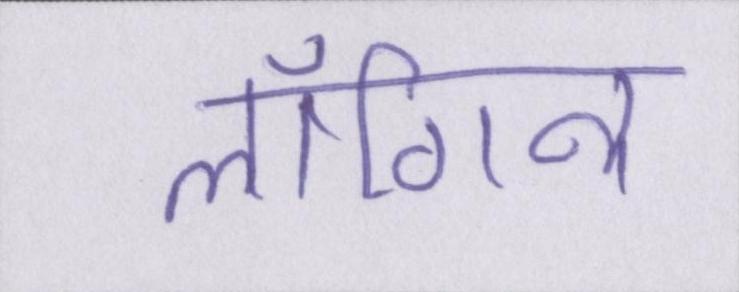 लॉगिन